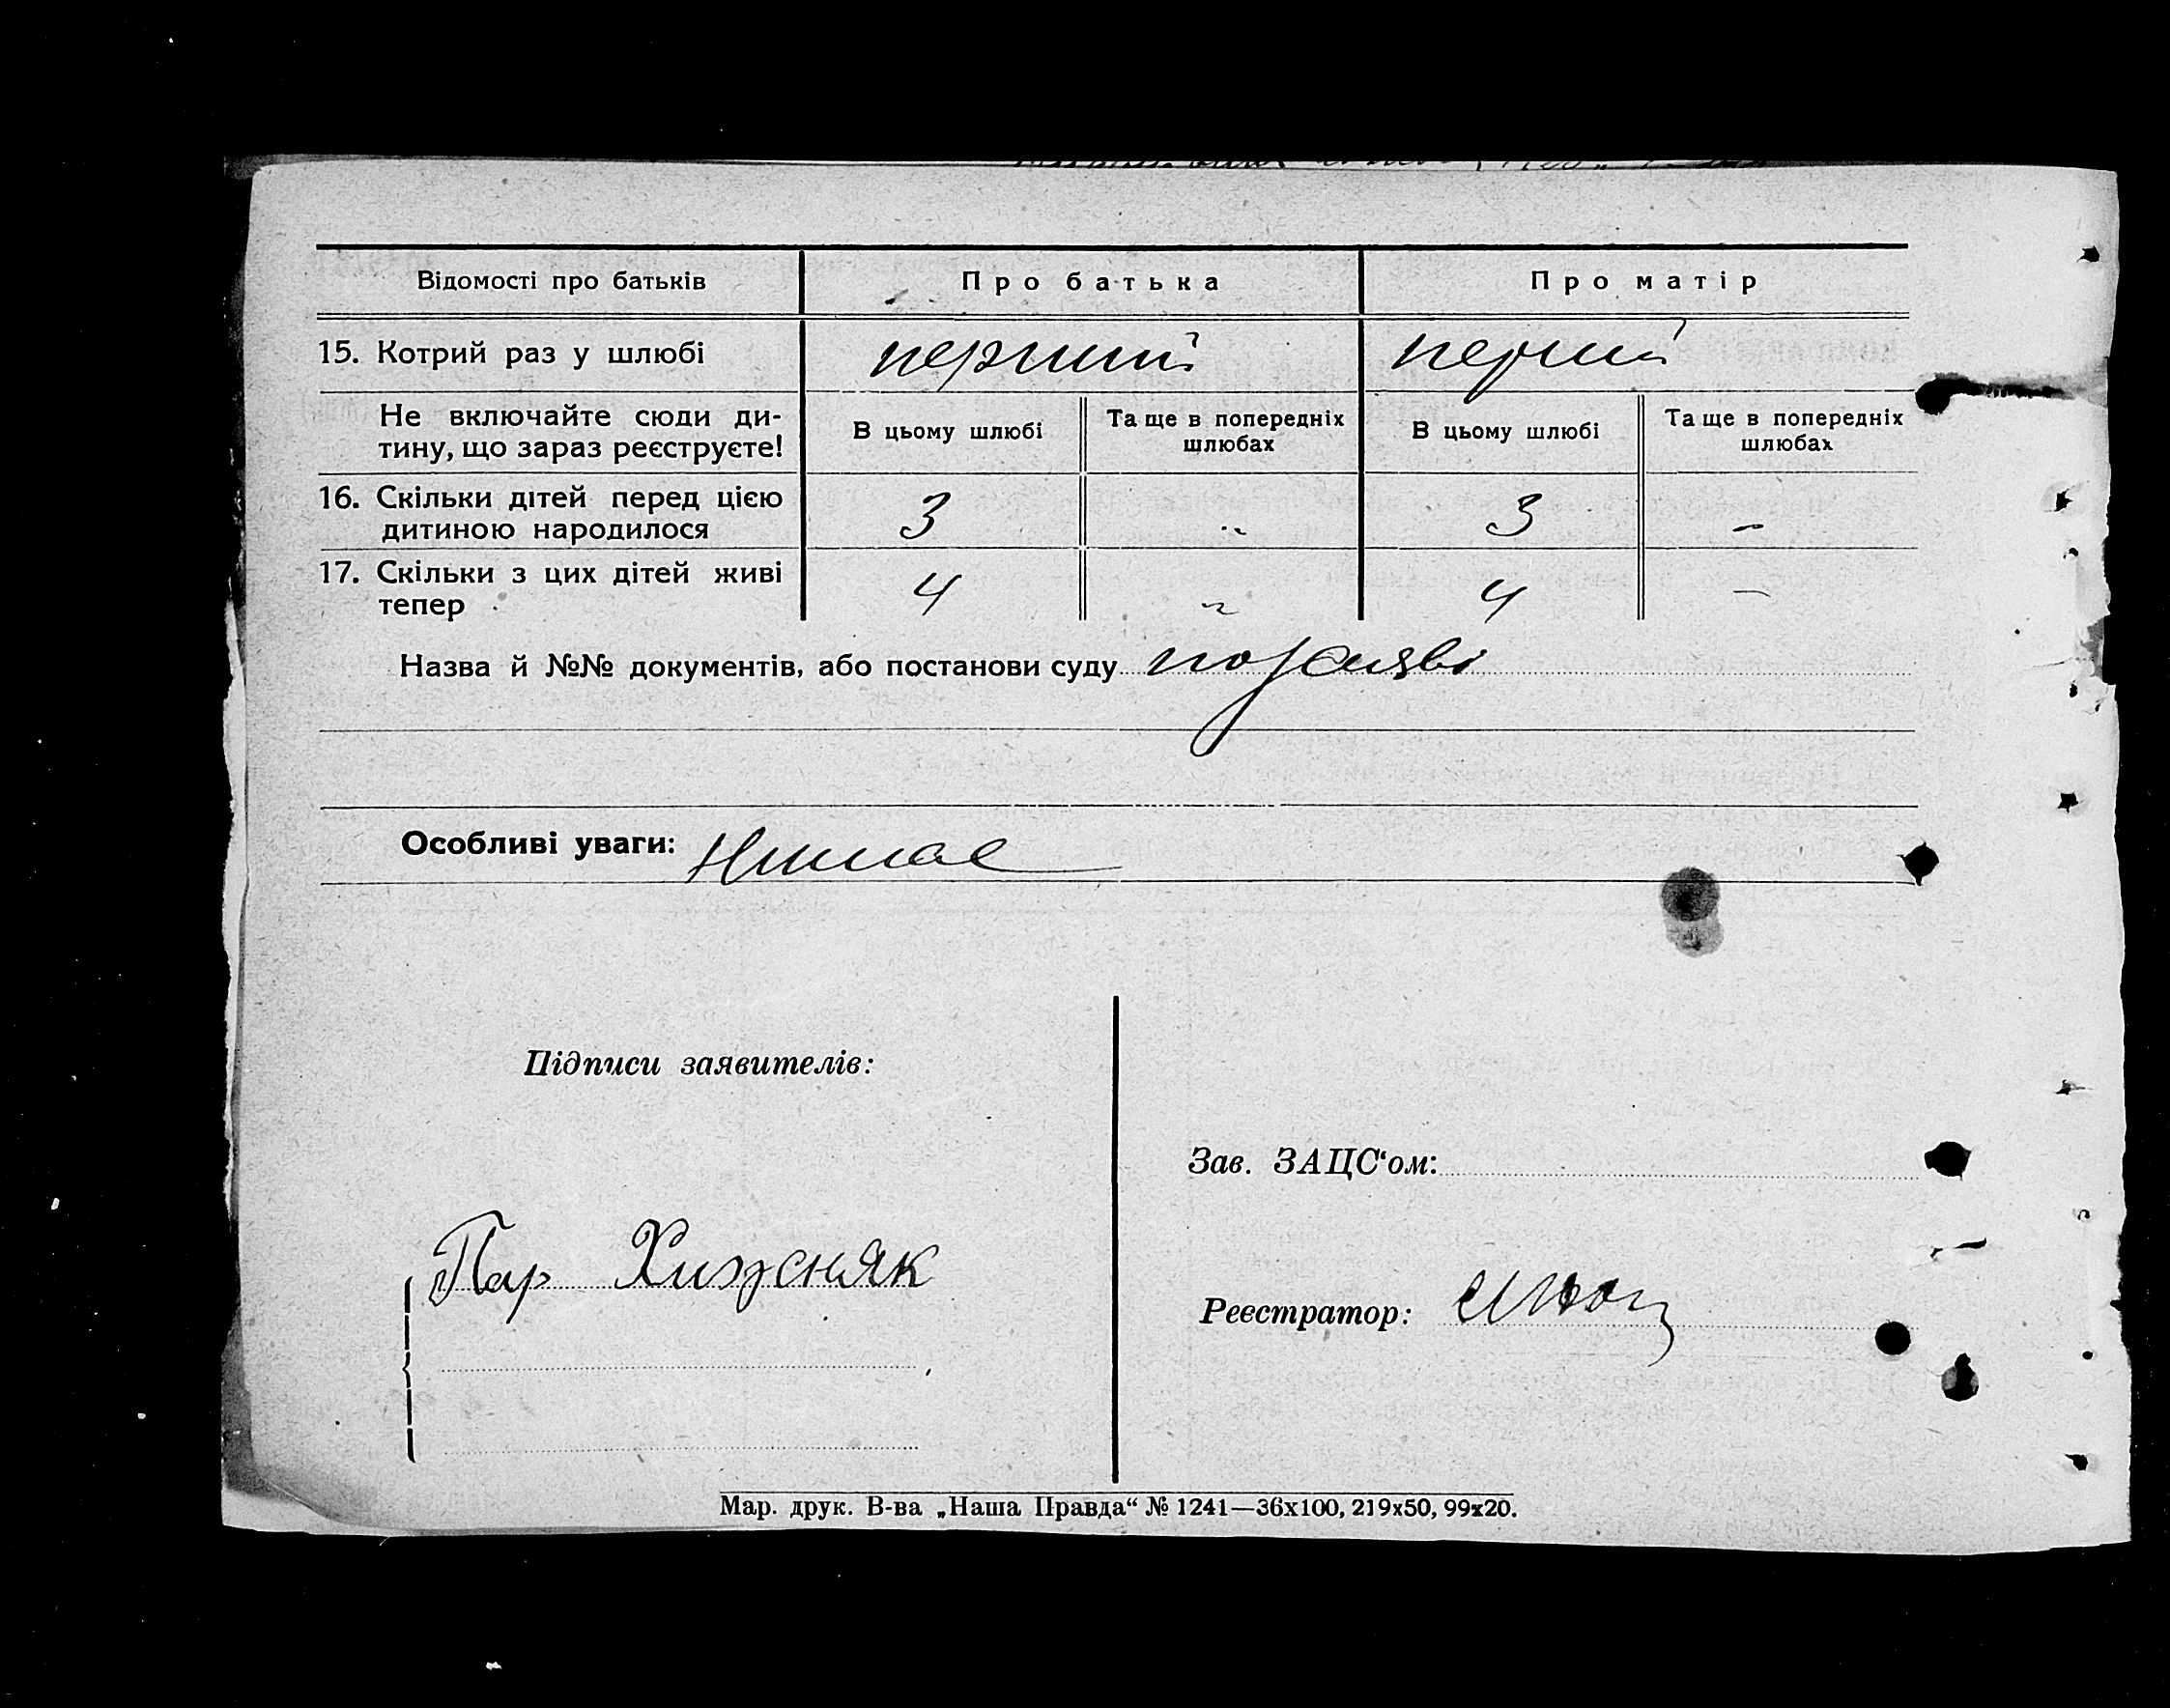 Відомості про батьків Про батька Про матір
15. Котрий раз у шлюбі перший перший
Не включайте сюди ди-
тину, що зараз реєструєте!
В цьому шлюбі Та ще в попередніх шлюбах В цьому шлюбі Та ще в попередніх шлюбах
16. Скільки дітей перед цією
дитиною народилося 3 „ 3 –
17. Скільки з цих дітей живі
тепер 4 „ 4 –
Назва й №№ документів, або постанови суду по заяві
Особливі уваги: Немае
Підписи заявителів:
Зав. ЗАЦС‘ом:
Пар Хижсняк
Реєстратор:
Мар. друк. В-ва „Наша Правда“ № 1241—36х100, 219х50, 99х20.